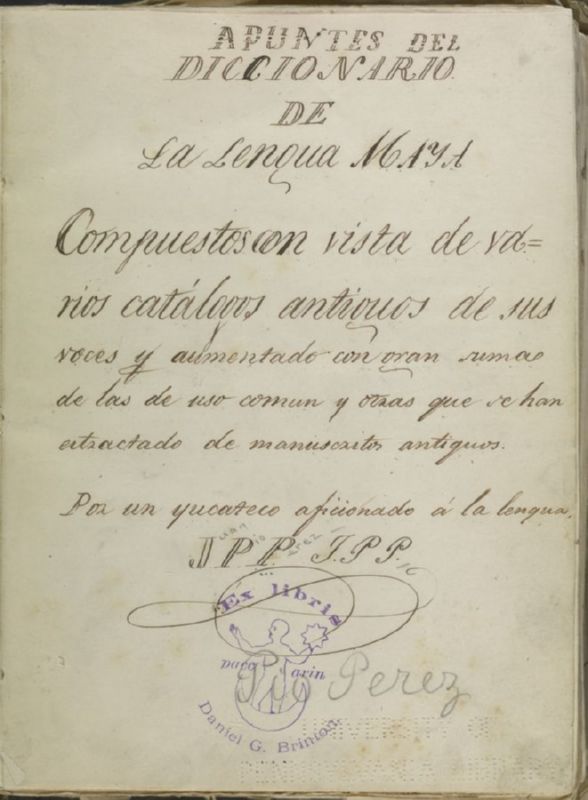 APUNTES DEL
DICCIONARIO
DE
La Lengua MAYA
Compuestos con vista de va=
rios catálogos antiguos de sus
voces y aumentado con gran suma
de las de uso comun y otras que se han
estractado de manuscritos antiguos.
Por un yucateco aficionado á la lengua.
JPP. J.P.P.
Ex libris
Pio Perez
Daniel G. Brinton.
UNIVERSITY OF